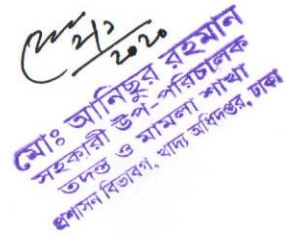 ২/১
২০২০
মোঃ আনিছুর রহমান
সহকারী উপ-পরিচালক
তদন্ত ও মামলা শাখা
প্রশাসন বিভাবগ, খাদ্য অধিদপ্তর, ঢাকা